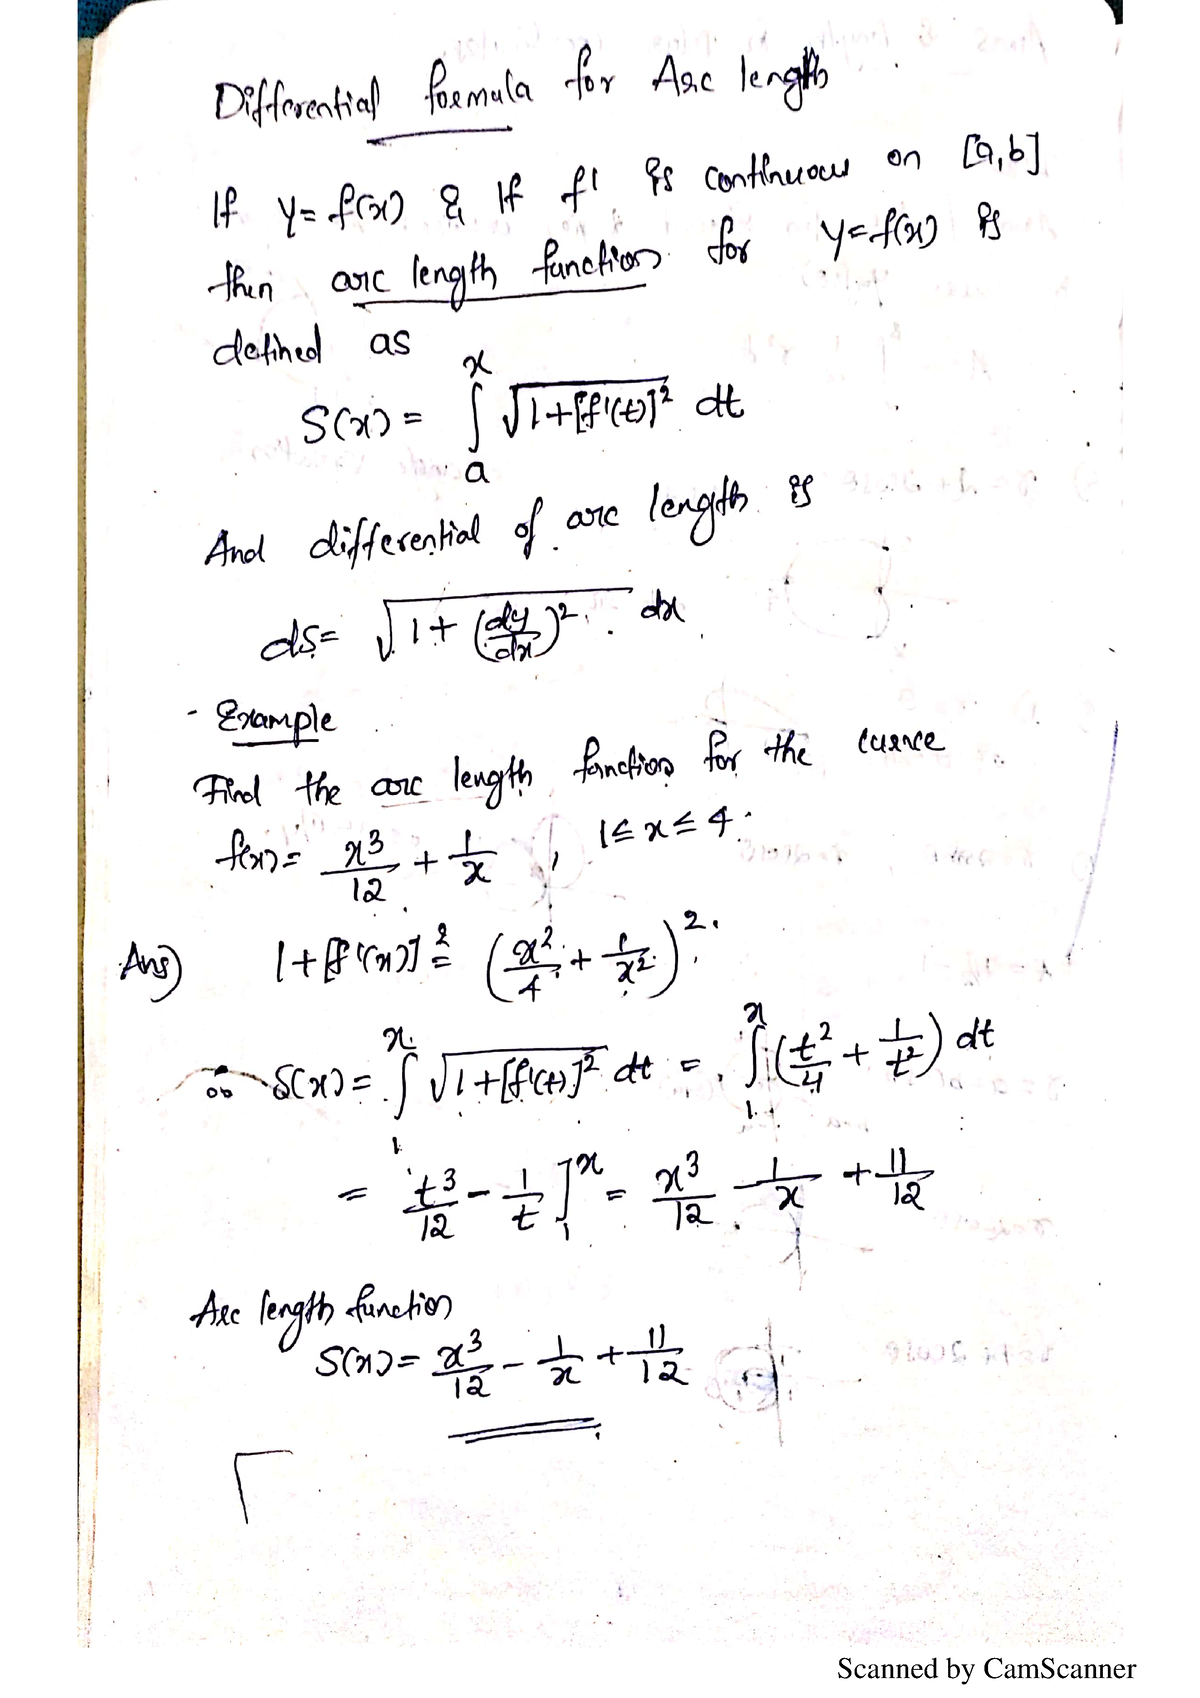 Differential formula for Arc length
If y = f(x) & If f' is continuous on [a,b]
then arc length function for y = f(x) is
defined as
S(x) = ∫ₐˣ √(1+[f'(t)]²) dt
And differential of arc length is
ds = √(1 + (dy/dx)²) dx
- Example
Find the arc length function for the curve
f(x) = x³/12 + 1/x , 1 ≤ x ≤ 4.
Ans) 1+[f'(x)]² = (x²/4 + 1/x²)².
∴ S(x) = ∫₁ˣ √(1+[f'(t)]²) dt = ∫₁ˣ (t²/4 + 1/t²) dt
= t³/12 - 1/t ]₁ˣ = x³/12 - 1/x + 11/12
Arc length function
S(x) = x³/12 - 1/x + 11/12
Scanned by CamScanner